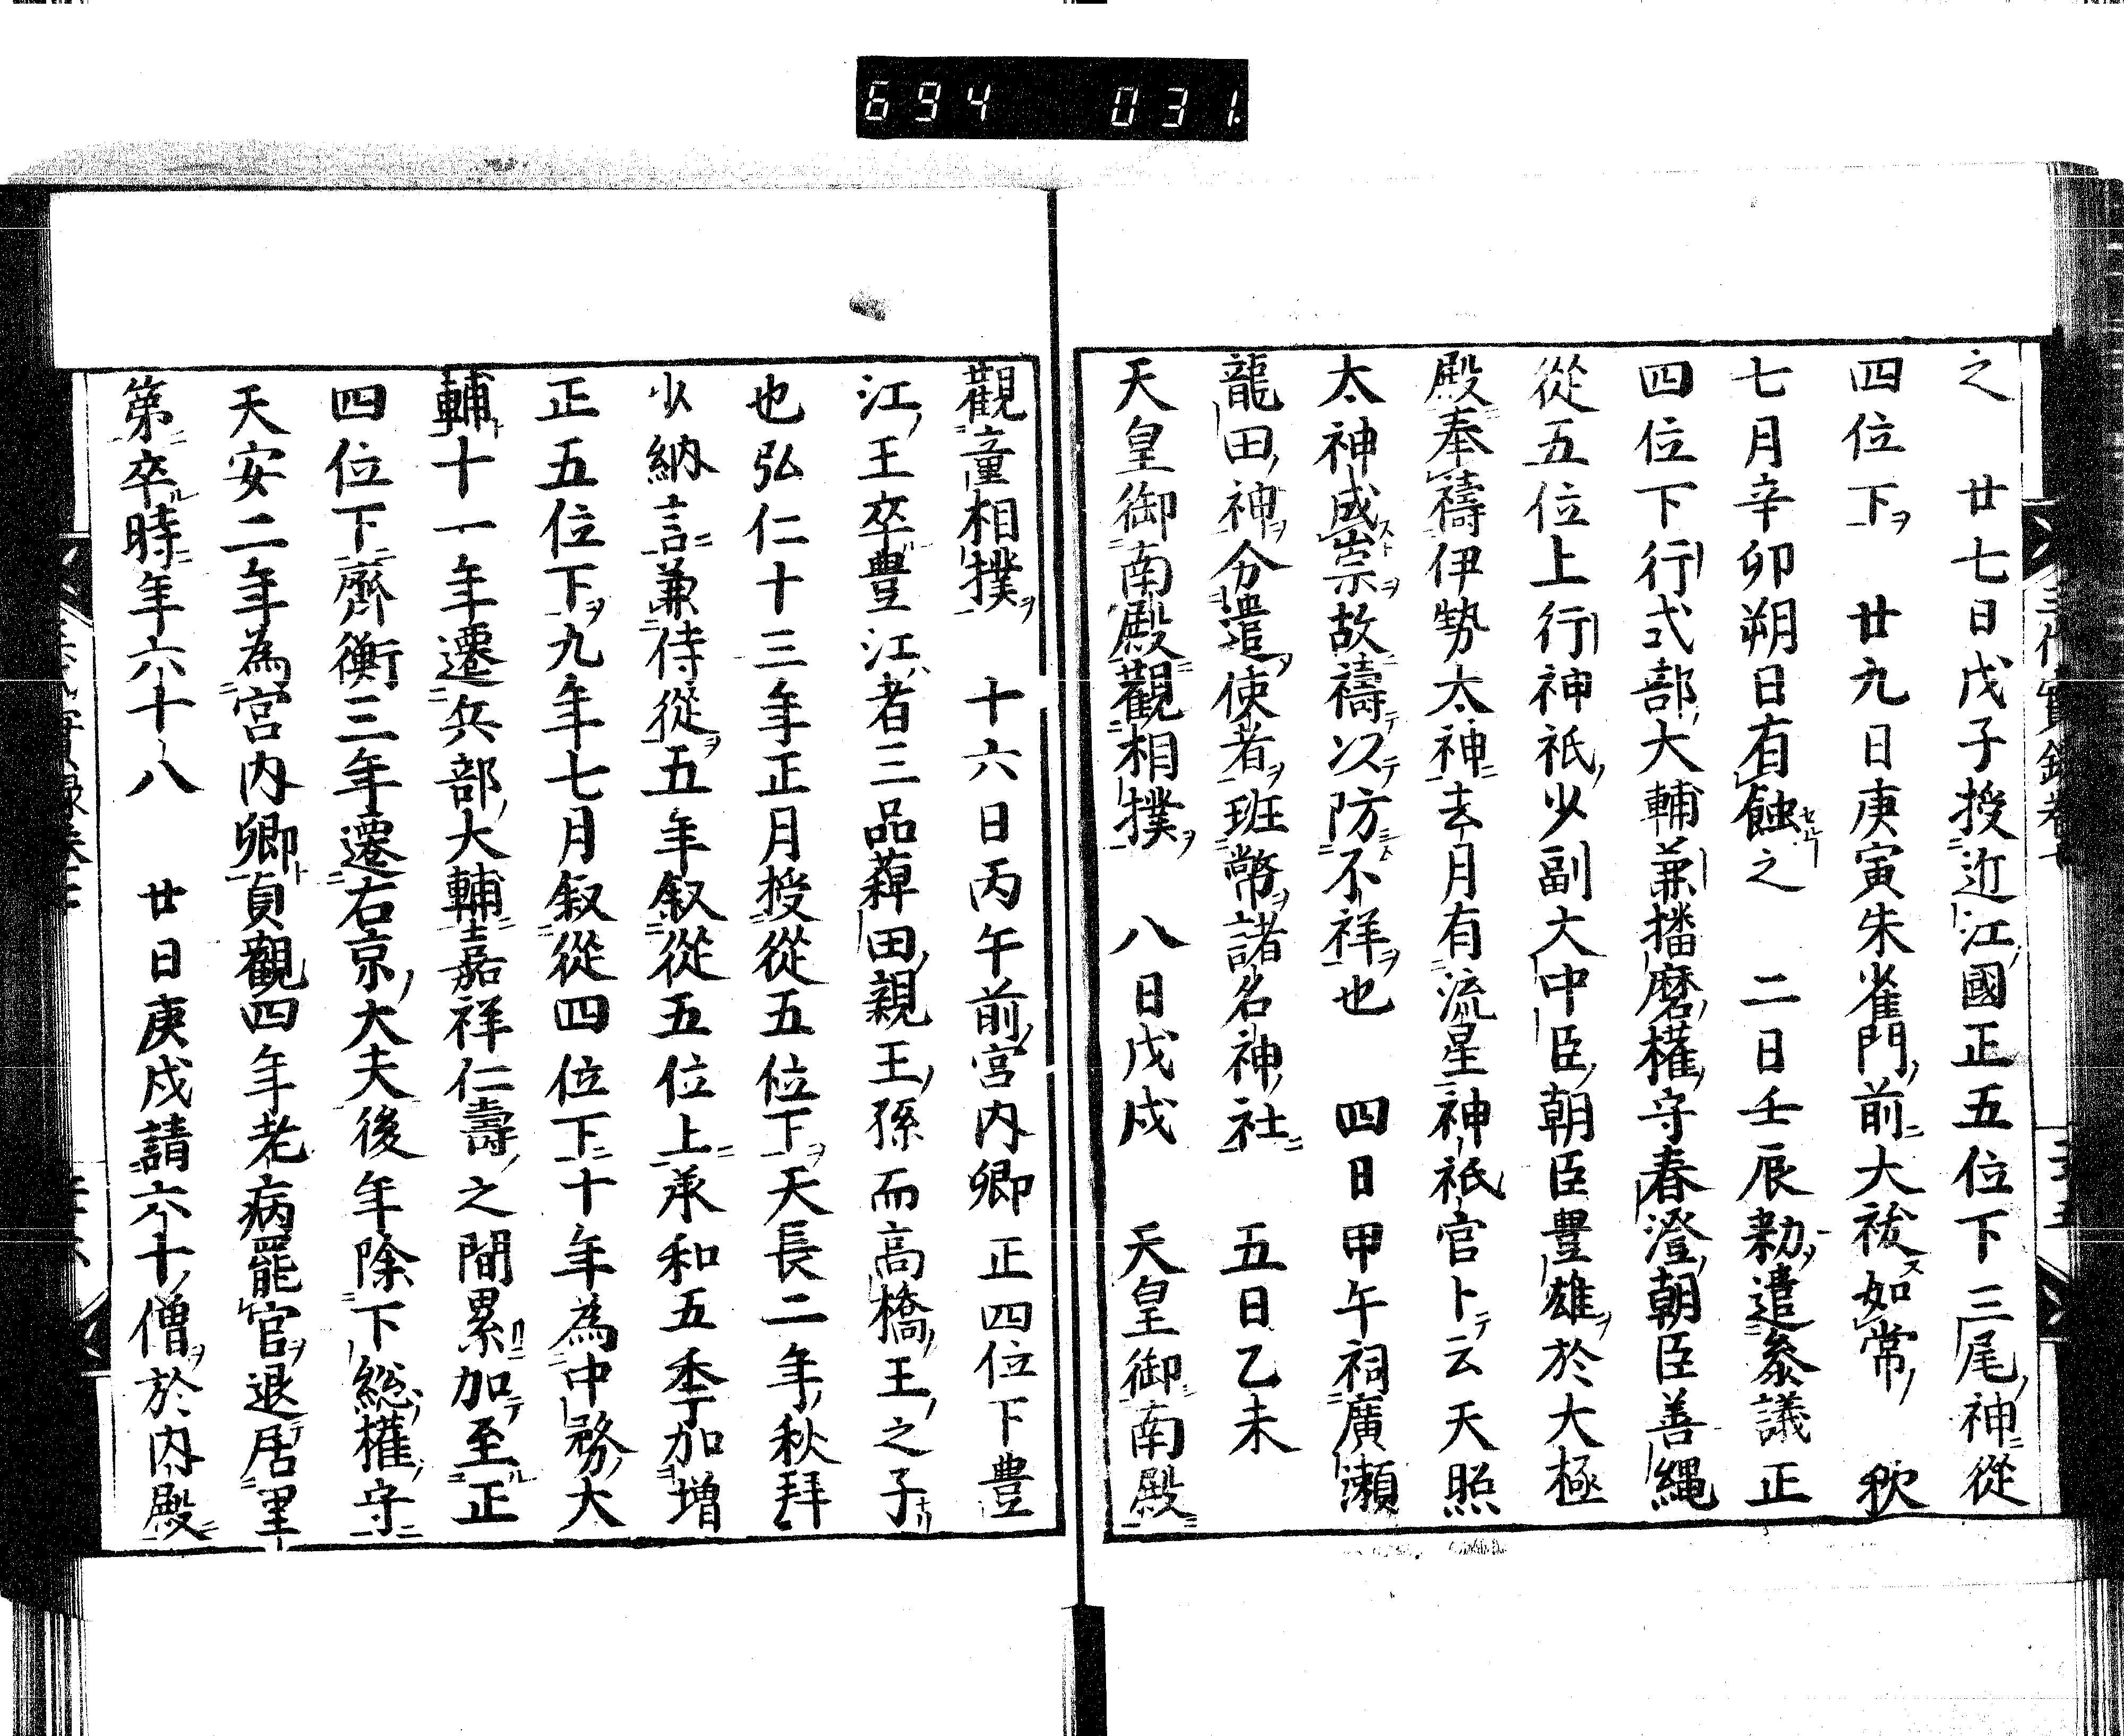 694 031
之　廿七日戊子授近江國正五位下三尾神從
四位下　廿九日庚寅朱雀門前大祓如常　秋
七月辛卯朔日有蝕之　二日壬辰勅遣參議正
四位下行式部大輔兼播磨權守春澄朝臣善繩
從五位上行神祇少副大中臣朝臣豊雄於大極
殿奉禱伊勢太神去月有流星神祇官卜云天照
太神成祟故禱以防不祥也　四日甲午祠廣瀬
龍田神分遣使者班幣諸名神社　五日乙未
天皇御南殿觀相撲　八日戊戌　天皇御南殿
觀童相撲　十六日丙午前宮内卿正四位下豊
江王卒豊江者三品葛田親王孫而高橋王之子
也弘仁十三年正月授從五位下天長二年秋拜
少納言兼侍從五年叙從五位上承和五季加増
正五位下九年七月叙從四位下十年為中務大
輔十一年遷兵部大輔嘉祥仁壽之間累加至正
四位下齊衡三年遷右京大夫後年除下総權守
天安二年為宮内卿貞觀四年老病罷官退居里
第卒時年六十八　廿日庚戌請六十僧於内殿